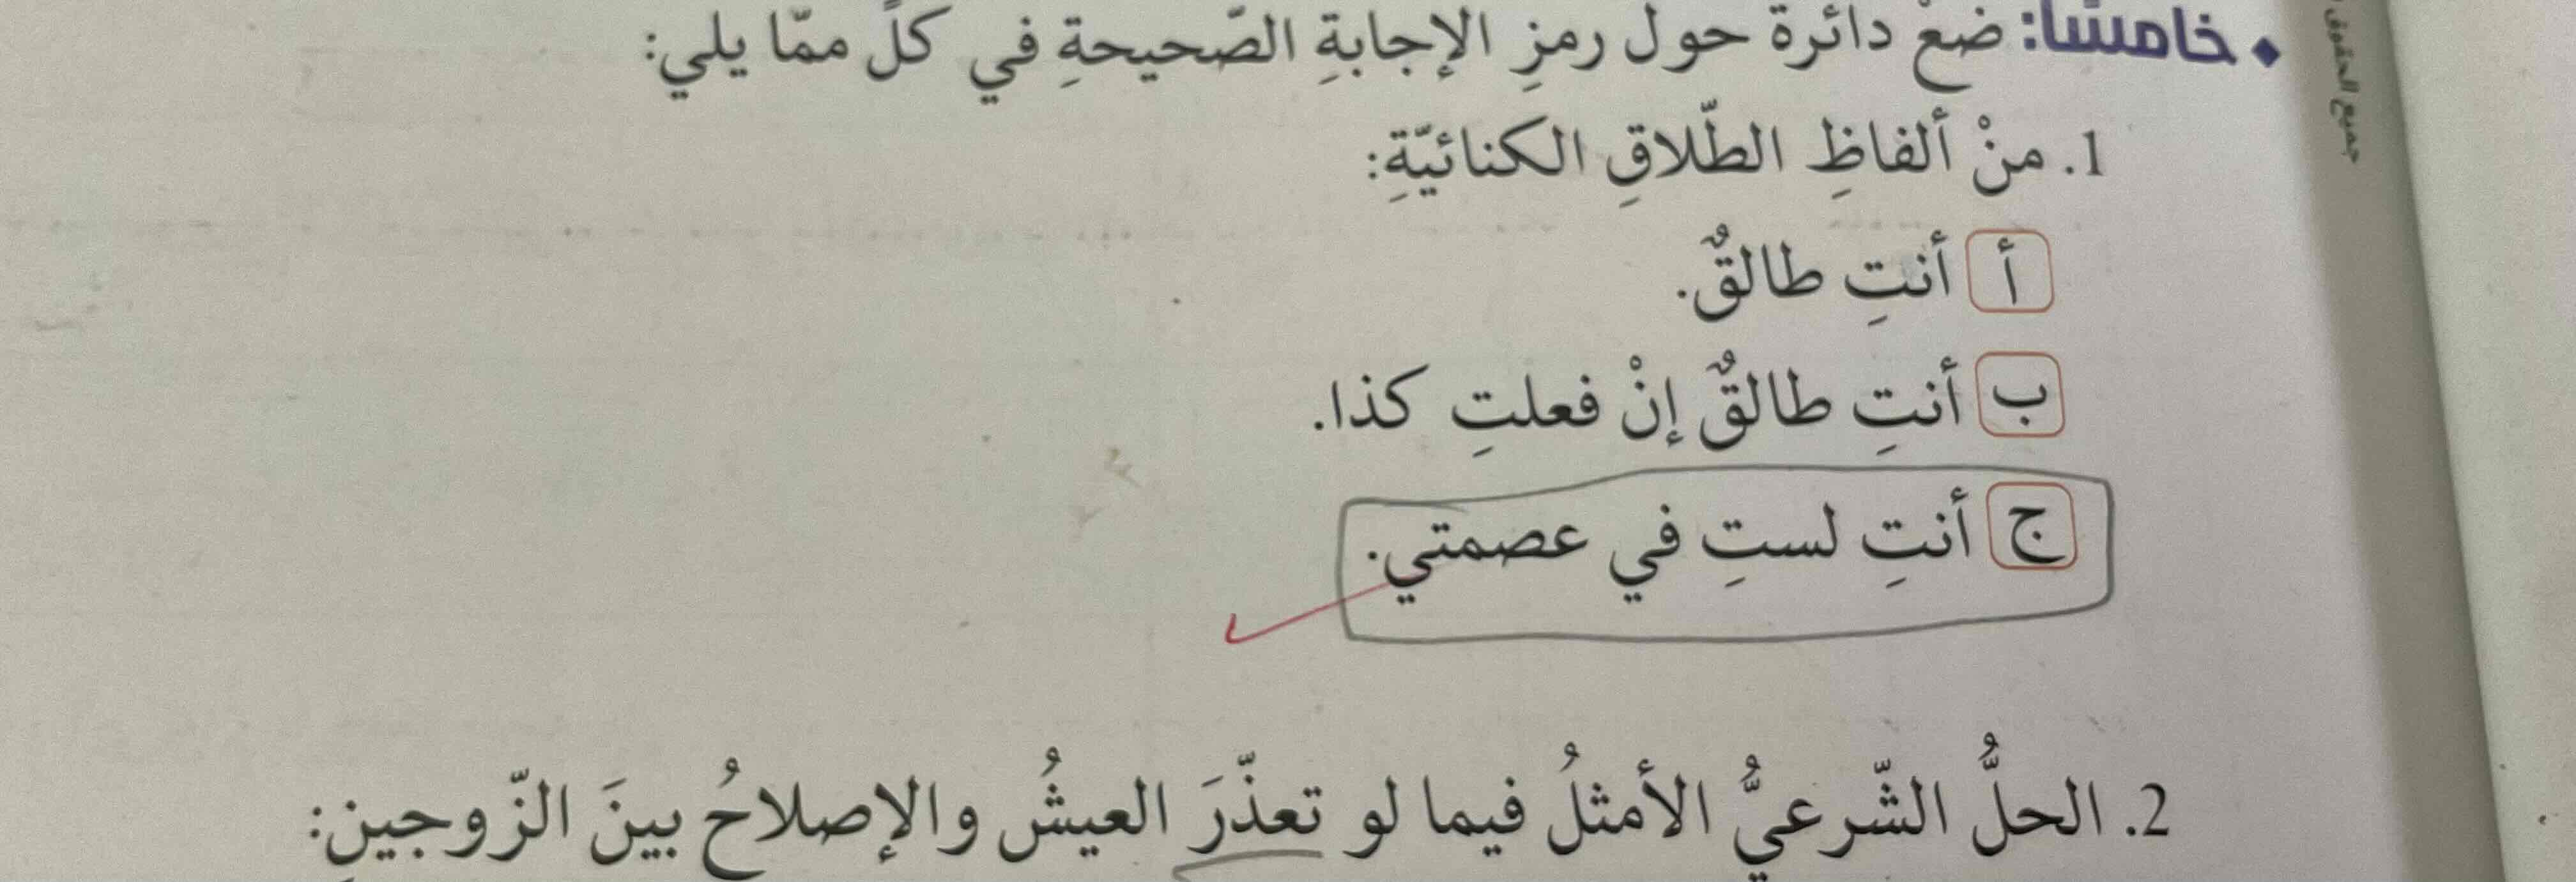 خامسًا: ضعْ دائرة حول رمزِ الإجابةِ الصّحيحةِ في كلّ ممّا يلي:
1. منْ ألفاظِ الطّلاقِ الكنائيّةِ:
أ أنتِ طالقٌ.
ب أنتِ طالقٌ إنْ فعلتِ كذا.
ج أنتِ لستِ في عصمتي.
2. الحلُّ الشّرعيُّ الأمثلُ فيما لو تعذّرَ العيشُ والإصلاحُ بينَ الزّوجينِ:
جميع الحقوق